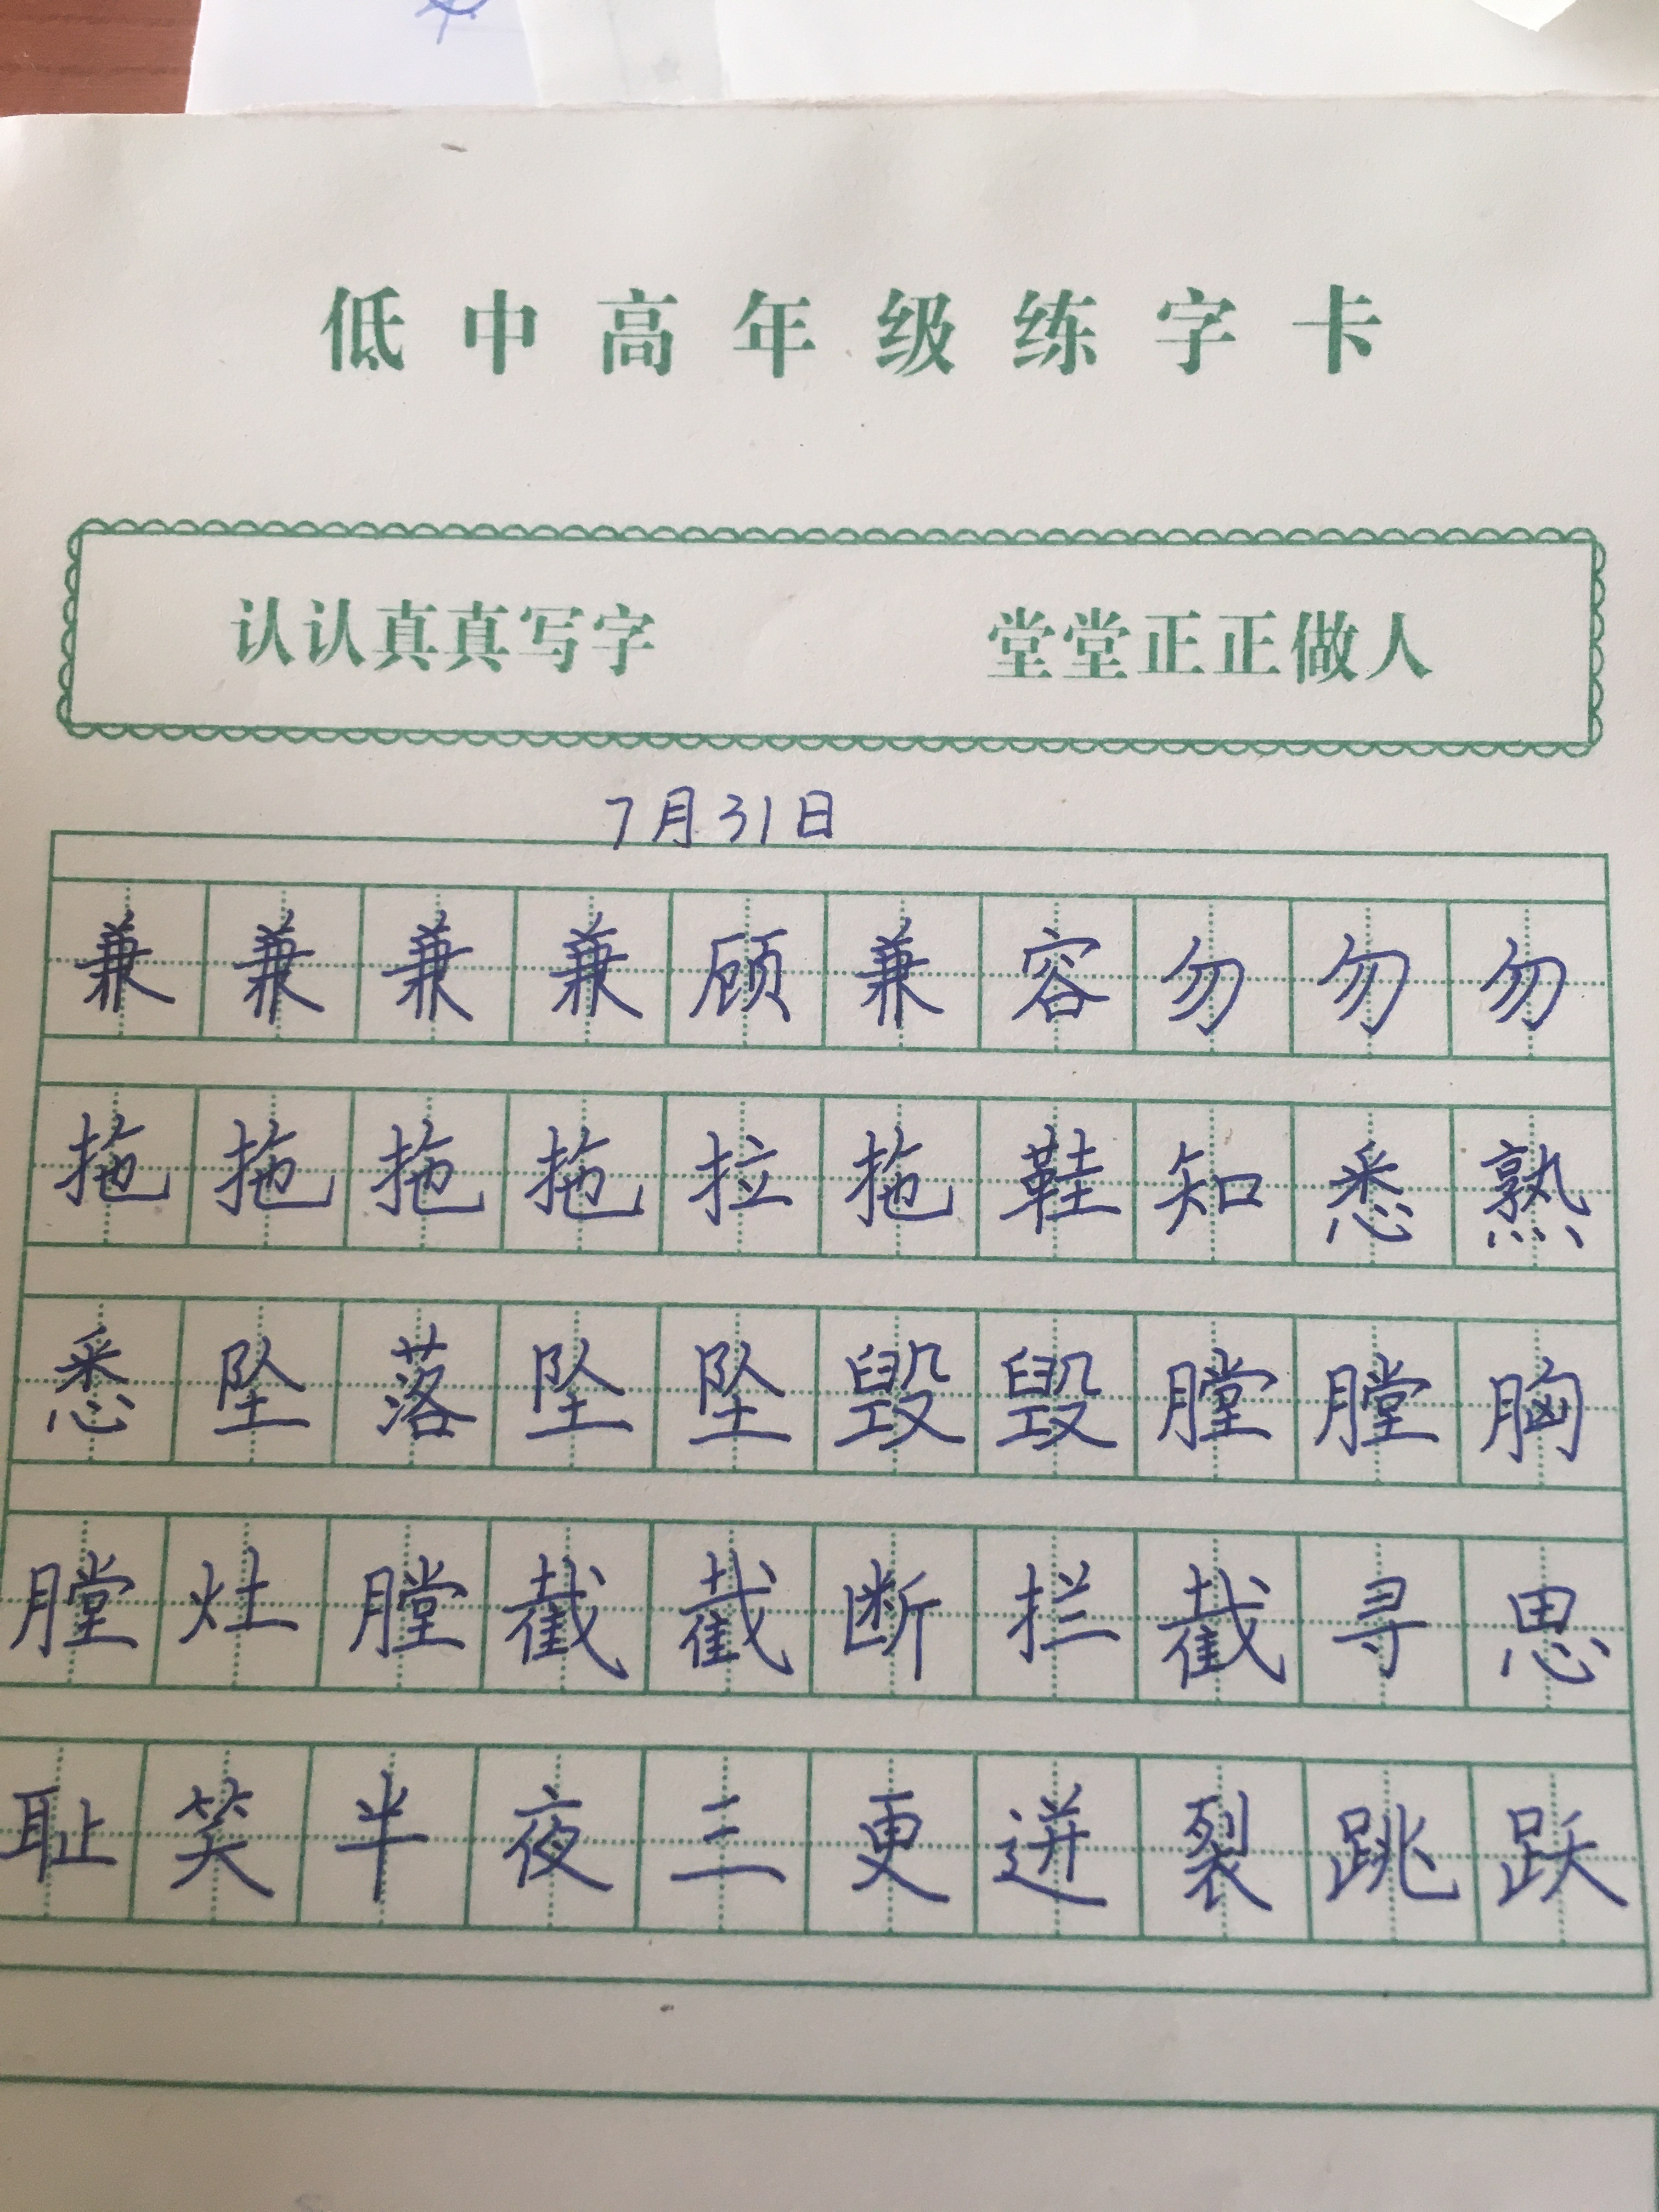 低中高年级练字卡
认认真真写字 堂堂正正做人
7月31日
兼兼兼兼顾兼容勿勿勿
拖拖拖拖拉拖鞋知悉熟
悉坠落坠坠毁毁膛膛胸
膛灶膛截截断拦截寻思
耻笑半夜三更迸裂跳跃